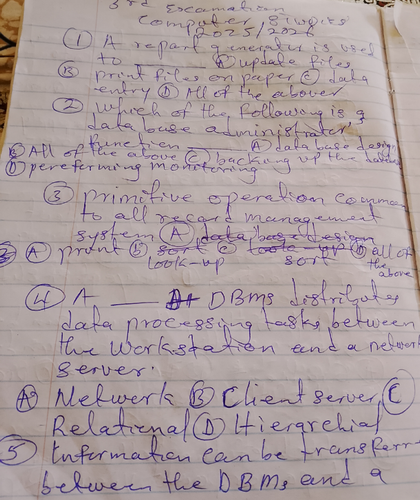 3rd Examination
Computer
2025/2026
① A report generator is used
to ______ Ⓐ update files
Ⓑ print files on paper Ⓒ data
entry Ⓓ All of the abover
② Which of the following is a
data base administrator
function ______ Ⓐ data base design
Ⓑ All of the above Ⓒ backing up the
Ⓓ pereferming monitoring
③ primitive operation common
to all record management
system Ⓐ data base design
Ⓐ print Ⓑ sort Ⓒ look-up Ⓓ all of
look-up sort the
above
④ A ____ DBMS distributes
data processing tasks between
the workstation and a network
server.
Ⓐ Network Ⓑ Client server Ⓒ
Relational Ⓓ Hierarchial
⑤ Information can be transferr
between the DBMS and a